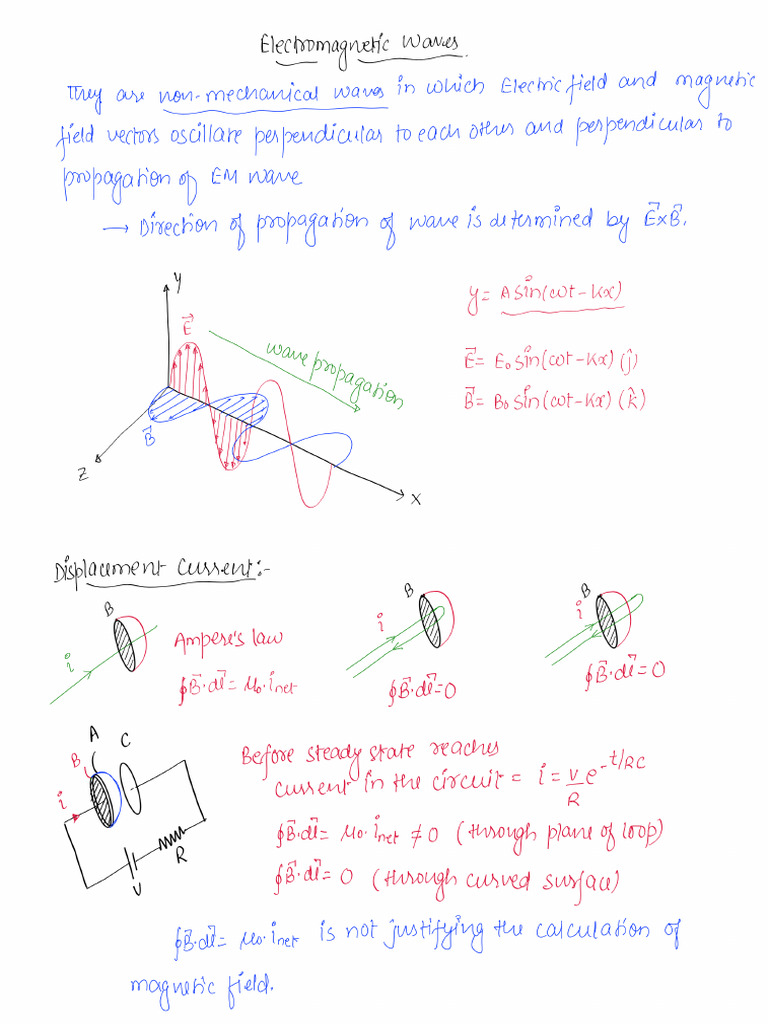 Electromagnetic Waves.
They are non-mechanical waves in which Electric field and magnetic
field vectors oscillate perpendicular to each other and perpendicular to
propagation of EM wave
→ Direction of propagation of wave is determined by E⃗×B⃗.
y
E⃗
wave propagation
B⃗
z
x
y = A sin(ωt - kx)
E⃗ = E₀ sin(ωt - kx) (ĵ)
B⃗ = B₀ sin(ωt - kx) (k̂)
Displacement Current:-
B
i
Ampere's law
∮B⃗·dl⃗ = μ₀·i_net
B
i
∮B⃗·dl⃗ = 0
B
i
∮B⃗·dl⃗ = 0
A
B
C
i
V
R
Before steady state reaches
current in the circuit = i = v/R e^(-t/RC)
∮B⃗·dl⃗ = μ₀·i_net ≠ 0 (through plane of loop)
∮B⃗·dl⃗ = 0 (through curved surface)
∮B⃗·dl⃗ = μ₀·i_net is not justifying the calculation of
magnetic field.